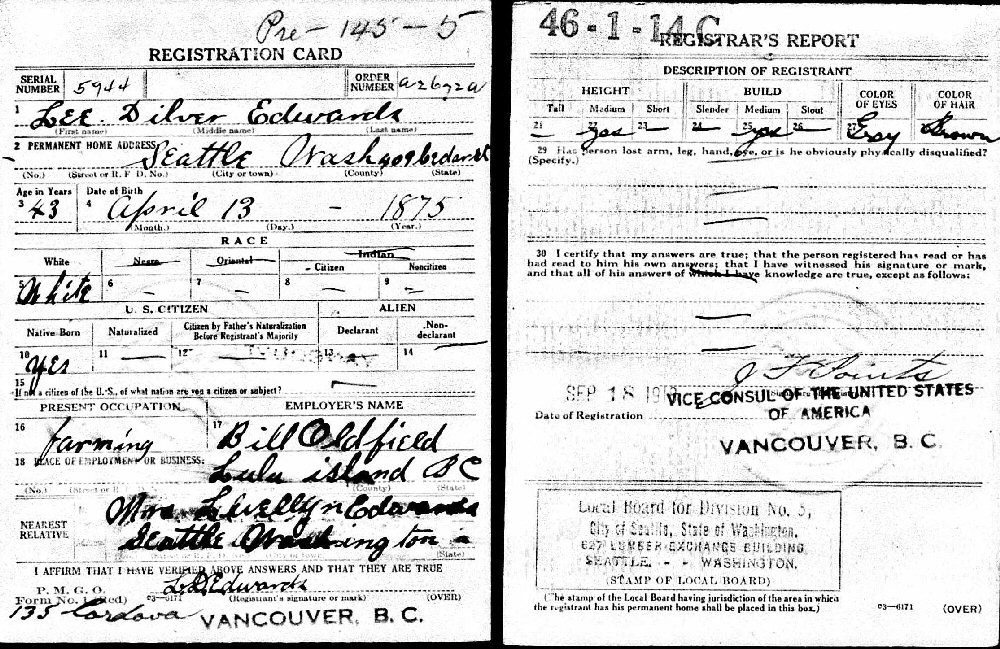 Pre - 145 - 5
REGISTRATION CARD
SERIAL NUMBER 5944
ORDER NUMBER A2692A
1 Lee Dilver Edwards
(First name) (Middle name) (Last name)
2 PERMANENT HOME ADDRESS Seattle Wash
(No.) (Street or R. F. D. No.) (City or town) (County) (State)
Age in Years Date of Birth
3 43 4 April 13 - 1875
(Month.) (Day.) (Year.)
RACE
White Negro Oriental Indian
Citizen Noncitizen
5 White 6 7 8 9
U. S. CITIZEN ALIEN
Native Born Naturalized Citizen by Father's Naturalization Before Registrant's Majority Declarant Non-declarant
10 Yes 11 12 13 14
15 If not a citizen of the U. S., of what nation are you a citizen or subject?
PRESENT OCCUPATION EMPLOYER'S NAME
16 farming 17 Bill Oldfield
18 PLACE OF EMPLOYMENT OR BUSINESS: Lulu island BC
(No.) (Street or R (County) (State)
NEAREST RELATIVE Mrs Llwellyn Edwards
Seattle Washington
(State)
I AFFIRM THAT I HAVE VERIFIED ABOVE ANSWERS AND THAT THEY ARE TRUE
P. M. G. O.
Form No. 1 (Red) 03-6171 L D Edwards
(Registrant's signature or mark) (OVER)
135 Cordova VANCOUVER, B. C.
46-1-14 C
REGISTRAR'S REPORT
DESCRIPTION OF REGISTRANT
HEIGHT BUILD COLOR OF EYES COLOR OF HAIR
Tall Medium Short Slender Medium Stout
21 22 yes 23 24 25 yes 26 27 Gray Brown
29 Has person lost arm, leg, hand, eye, or is he obviously physically disqualified?
(Specify.)
30 I certify that my answers are true; that the person registered has read or has
had read to him his own answers; that I have witnessed his signature or mark,
and that all of his answers of which I have knowledge are true, except as follows:
SEP 18
Date of Registration
VICE CONSUL OF THE UNITED STATES
OF AMERICA
VANCOUVER, B. C.
Local Board for Division No. 5,
City of Seattle, State of Washington.
627 LUMBER EXCHANGE BUILDING
SEATTLE, - - WASHINGTON.
(STAMP OF LOCAL BOARD)
(The stamp of the Local Board having jurisdiction of the area in which
the registrant has his permanent home shall be placed in this box.)
03-6171 (OVER)